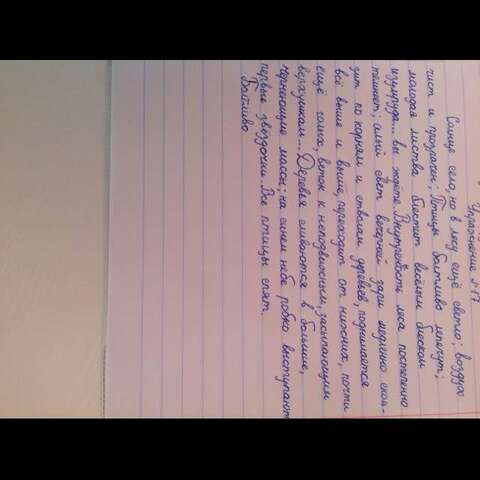 Упражнение №17.
Солнце село, но в лесу ещё светло; воздух
чист и прозрачен; Птицы болтливо лепечут;
молодая листва блестит весёлым блеском
изумруда... вы ждёте. Внутренность леса постепенно
темнеет; алый свет вечерней зари медленно сколь-
зит по корням и стволам деревьев, поднимается
всё выше и выше, переходит от нижних, почти
ещё голых, веток к неподвижным, засыпающим
верхушкам... Деревья сливаются в большие,
чернеющие массы; на синем небе робко выступают
первые звёздочки. Все птицы спят.
Болтливо